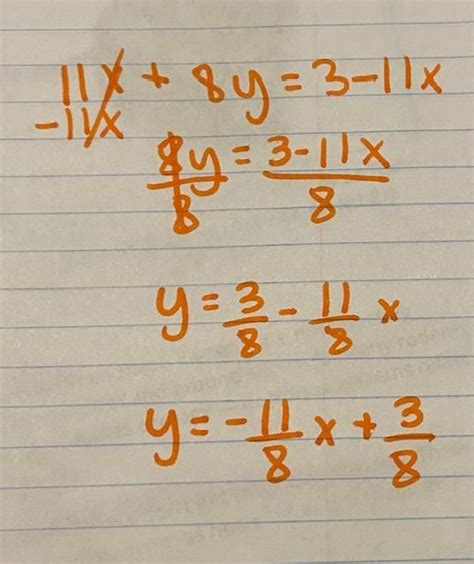 11x + 8y = 3 - 11x
-11x
8y = 3 - 11x
8 8
y = 3/8 - 11/8 x
y = -11/8 x + 3/8